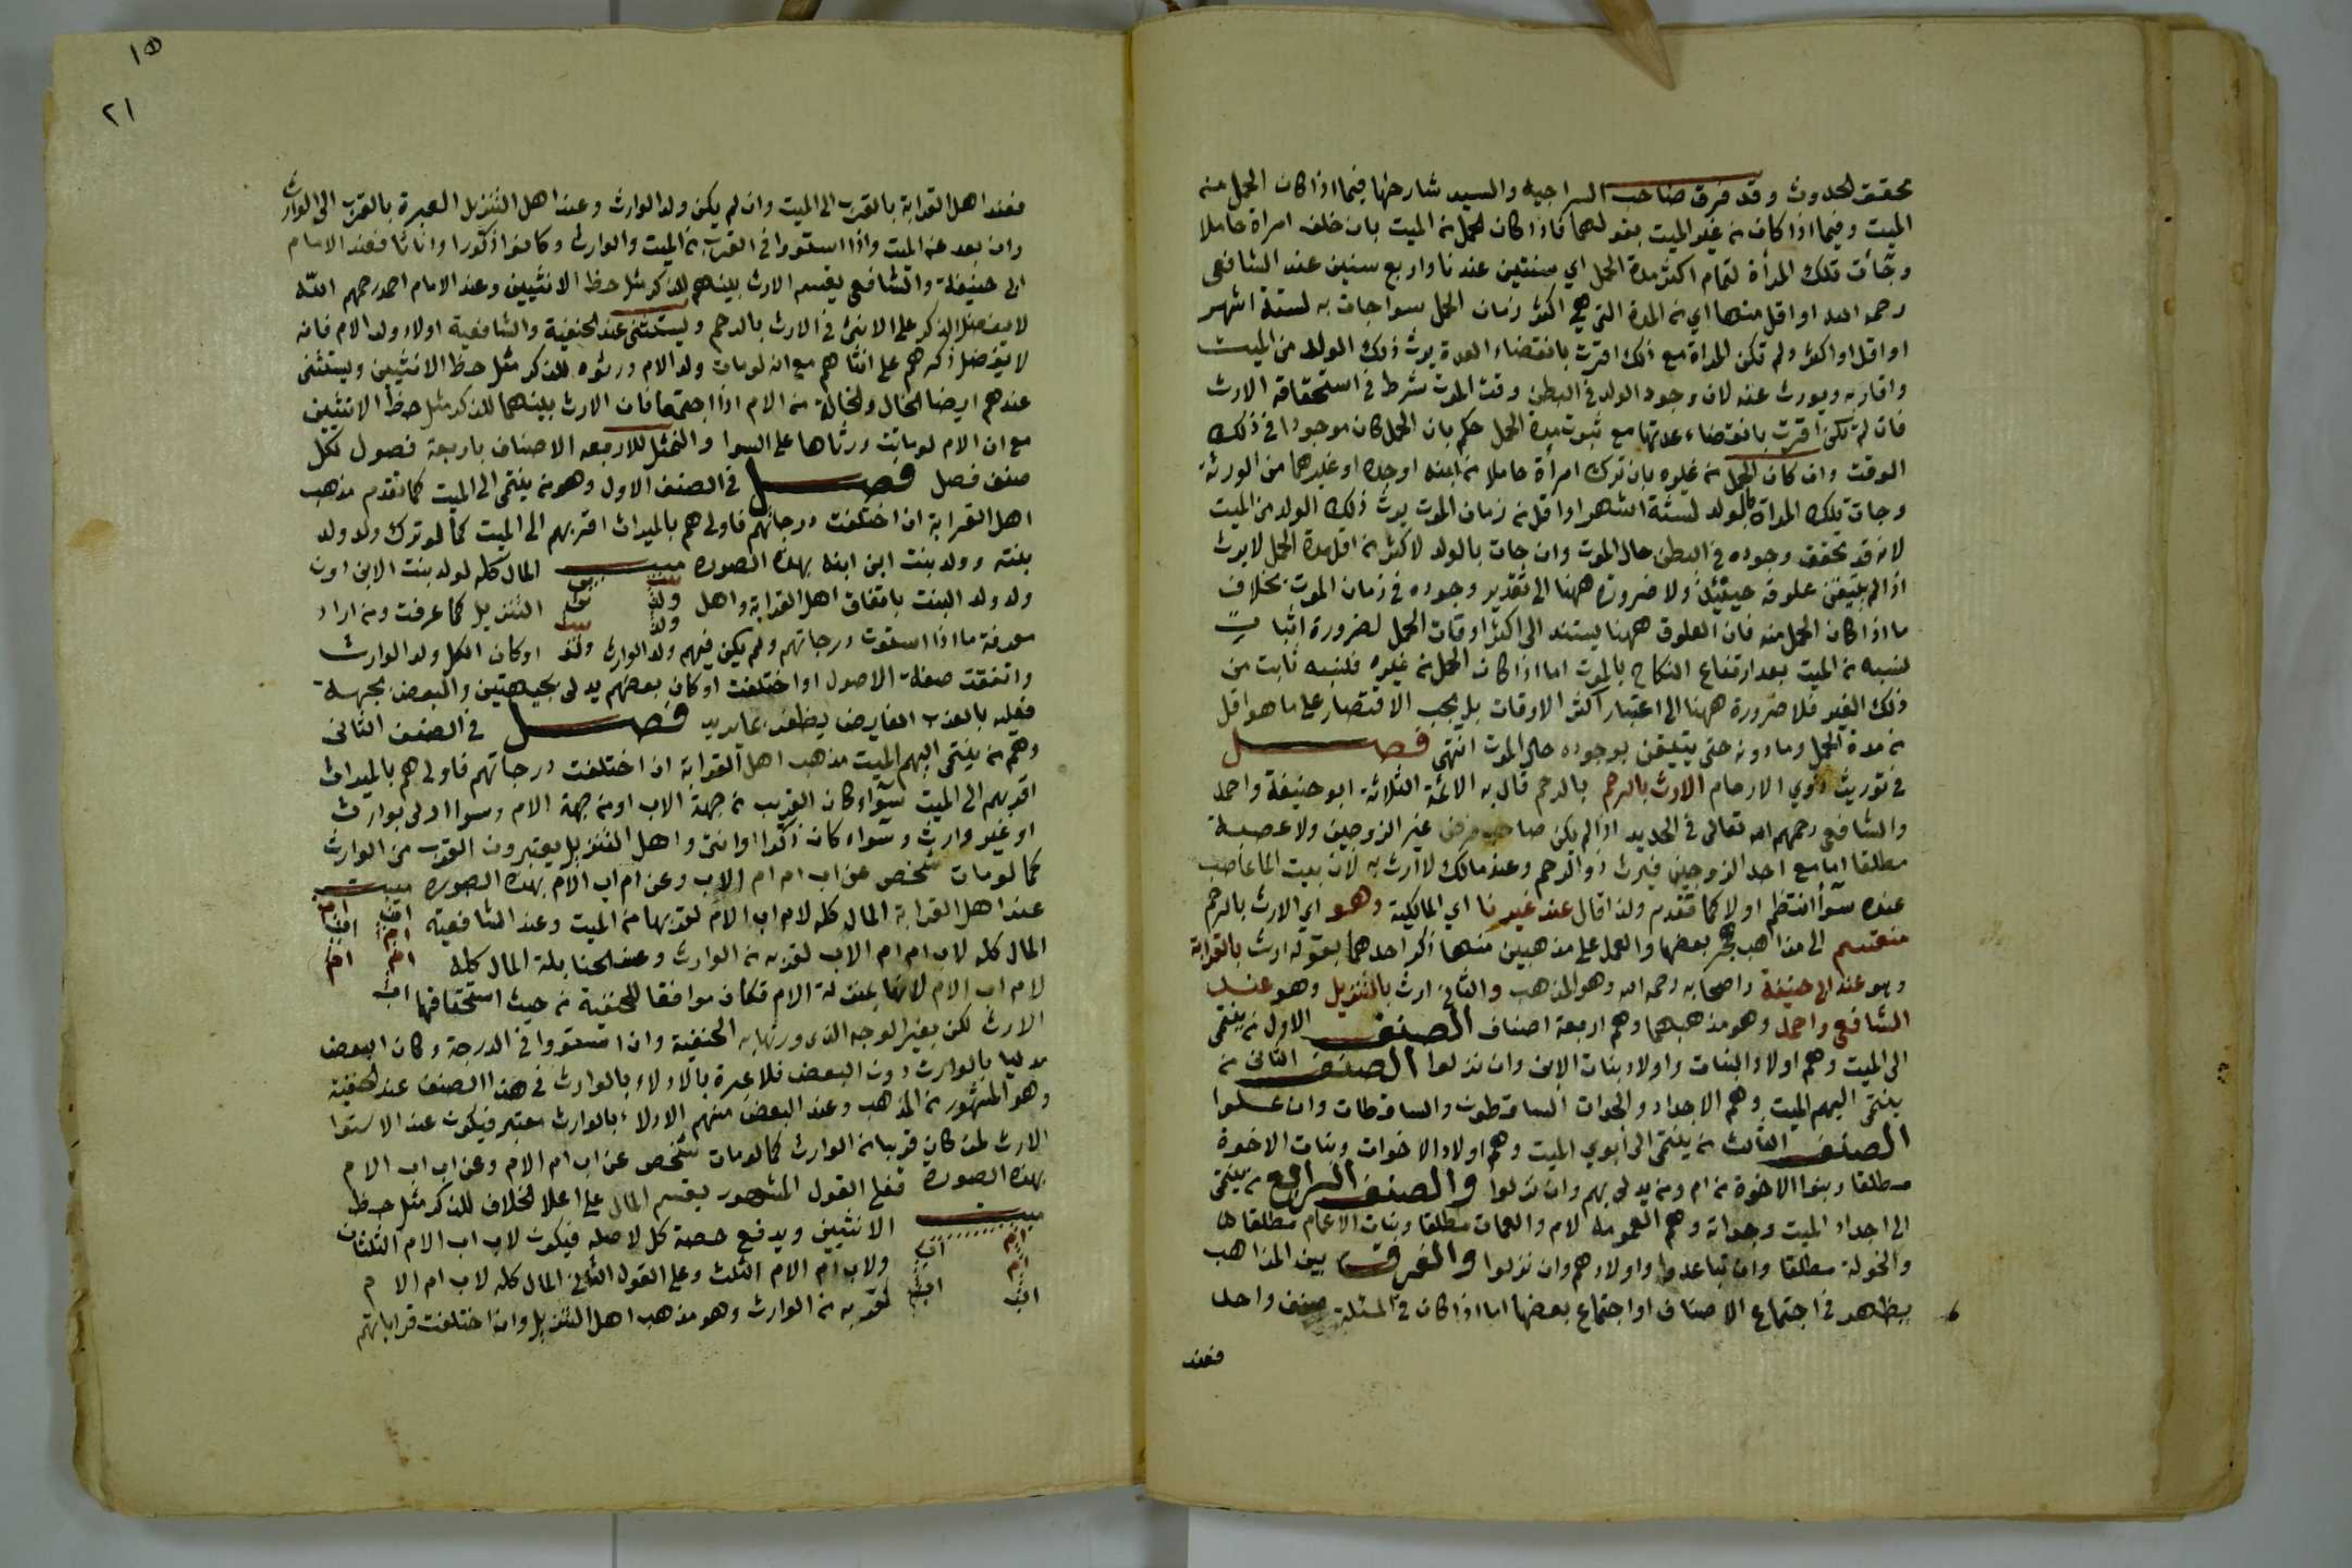 محقق الحدوث وقد فرق صاحب السراجيه والسيد شارحها فيما اذا كان الحمل منه
الميت وفيما اذا كان من غير الميت بقولهما فاذا كان الحمل من الميت بان خلف امراة حاملا
وجأت تلك المرأة لتمام اكثر مدة الحمل اي سنتين عندنا واربع سنين عند الشافعي
رحمه الله او اقل منها اي من المدة التي هي اكثر زمان الحمل سوا جات به لستة اشهر
او اقل او اكثر ولم تكن المراة مع ذلك اقرت بانقضاء العدة يرث ذلك الولد من الميت
واقاربه ويورث عنه لان وجود الولد في البطن وقت الموت شرط في استحقاقه الارث
فان لم تكن اقرت بانقضاء عدتها مع ثبوت مدة الحمل حكم بان الحمل كان موجودا في ذلك
الوقت وان كان الحمل من غيره بان ترك امرأة حاملا من ابنه او جده او غيرهما من الورثة
وجات تلك المراة بالولد لستة اشهر او اقل من زمان الموت يرث ذلك الولد من الميت
لانه قد تحقق وجوده في البطن حال الموت وان جات بالولد لاكثر من اقل مدة الحمل لا يرث
اذ الم يتيقن علوقه حينئذ ولا ضرورة ههنا الى تقدير وجوده في زمان الموت بخلاف
ما اذا كان الحمل منه فان العلوق ههنا يستند الى اكثر اوقات الحمل لضرورة اثبات
نسبه من الميت بعد ارتفاع النكاح بالموت اما اذا كان الحمل من غيره فنسبه ثابت من
ذلك الغير فلا ضرورة ههنا الى اعتبار اكثر الاوقات بل يجب الاقتصار على ما هو اقل
من مدة الحمل وما دونه حتى يتيقن بوجوده حال الموت انتهى فصل
في توريث ذوي الارحام الارث بالرحم بالرحم قال به الائمة الثلاثة ابو حنيفة واحمد
والشافعي رحمهم الله تعالى في الجديد اذا لم يكن صاحب فرض غير الزوجين ولا عصبة
مطلقا اما مع احد الزوجين فيرث ذو الرحم وعند مالك لا ارث به لان بيت المال عاصب
عنده سوأ انتظم اولا كما تقدم ولذا قال عند غيرنا اي المالكية وهو اي الارث بالرحم
منقسم الى مذاهب هجر بعضها والعمل على مذهبين منها ذكر احدهما بقوله ارث بالقرابة
وهو عند ابي حنيفة واصحابه رحمه الله وهو المذهب والثاني ارث بالتنزيل وهو عند
الشافعي واحمد وهو مذهبهما وهم اربعة اصناف الصنف الاول من ينتمى
الى الميت وهم اولاد البنات واولاد بنات الابن وان نزلوا الصنف الثاني من
ينتمى اليهم الميت وهم الاجداد والجدات الساقطون والساقطات وان علوا
الصنف الثالث من ينتمى الى ابوي الميت وهم اولاد الاخوات وبنات الاخوة
مطلقا وبنوا الاخوة من ام ومن يدلى بهم وان نزلوا والصنف الرابع من ينتمى
الى اجداد الميت وجداته وهم العمومه لام والعمات مطلقا وبنات الاعمام مطلقا
والخولة مطلقا وان تباعدوا واولادهم وان نزلوا والفرق بين المذاهب
يظهر في اجتماع الاصناف او اجتماع بعضها اما اذا كان في المسئلة صنف واحد
فعند
١٥
٢١
فعند اهل القرابة بالقرب الى الميت وان لم يكن ولد الوارث وعند اهل التنزيل العبرة بالقرب الى الوارث
وان بعد عن الميت واذا استووا في القرب من الميت والوارث وكانوا ذكورا واناثا فعند الامام
ابى حنيفة والشافعي يقسم الارث بينهم للذكر مثل حظ الانثيين وعند الامام احمد رحمهم الله
لا يفضل الذكر على الانثى في الارث بالرحم ويستثنى عند الحنفية والشافعية اولاد ولد الام فانه
لا يفضل ذكرهم على انثاهم مع ان لو مات ولد الام ورثوه للذكر مثل حظ الانثيين ويستثنى
عندهم ايضا الخال والخالة من الام اذا اجتمعا فان الارث بينهما للذكر مثل حظ الانثيين
مع ان الام لو ماتت ورثاها على السوا والتمثل للاربعه الاصناف باربعة فصول لكل
صنف فصل فصل في الصنف الاول وهو من ينتمى الى الميت كما تقدم مذهب
اهل القرابة ان اختلفت درجاتهم فاولى هم بالميراث اقربهم الى الميت كما لو ترك ولد ولد
بنته وولد بنت ابن ابنه بهذه الصورة ميت المال كله لولد بنت الابن دون
ولد ولد البنت باتفاق اهل القرابة واهل التنزيل كما عرفت ومن اراد
بنت ولد ولد
معرفة ما اذا استوت درجاتهم ولم يكن فيهم ولد الوارث او كان الكل ولد الوارث
واتفقت صفة الاصول او اختلفت او كان بعضهم يدلى بجهتين والبعض بجهة
فعليه بالعذب الفايض يظفر بما يريد فصل في الصنف الثانى
وهم من ينتمى اليهم الميت مذهب اهل القرابة ان اختلفت درجاتهم فاولى هم بالميراث
اقربهم الى الميت سواء كان القريب من جهة الاب او من جهة الام وسوا ادلى بوارث
او غير وارث وسواء كان ذكرا او انثى واهل التنزيل يعتبرون القرب من الوارث
كما لو مات شخص عن اب ام ام الاب وعن ام اب الام بهذه الصورة ميت
عند اهل القرابة المال كله لام اب الام لقربها من الميت وعند الشافعية
المال كله لاب ام ام الاب لقربه من الوارث وعند الحنابلة المال كله
اب ام ام اب
ام اب ام
لام اب الام لانها بمنزلة الام فكان موافقا للحنفية من حيث استحقاقها
الارث لكن بغير الوجه الذى ورثها به الحنفية وان استووا في الدرجة وكان البعض
مدليا بالوارث دون البعض فلا عبرة بالادلاء بالوارث في هذا الصنف عند الحنفية
وهو المشهور من المذهب وعند البعض منهم الادلاء بالوارث معتبر فيكون عند الاستوا
الارث لمن كان قريبا من الوارث كما لو مات شخص عن اب ام الام وعن اب اب الام
بهذه الصورة فعلى القول المشهور يقسم المال على اعلا الخلاف للذكر مثل حظ
ميت الانثيين ويدفع حصة كل لاصله فيكون لاب اب الام الثلثان
ولاب ام الام الثلث وعلى القول الثاني المال كله لاب ام الام
لقربه من الوارث وهو مذهب اهل التنزيل وان اختلفت قراباتهم
ام ام اب